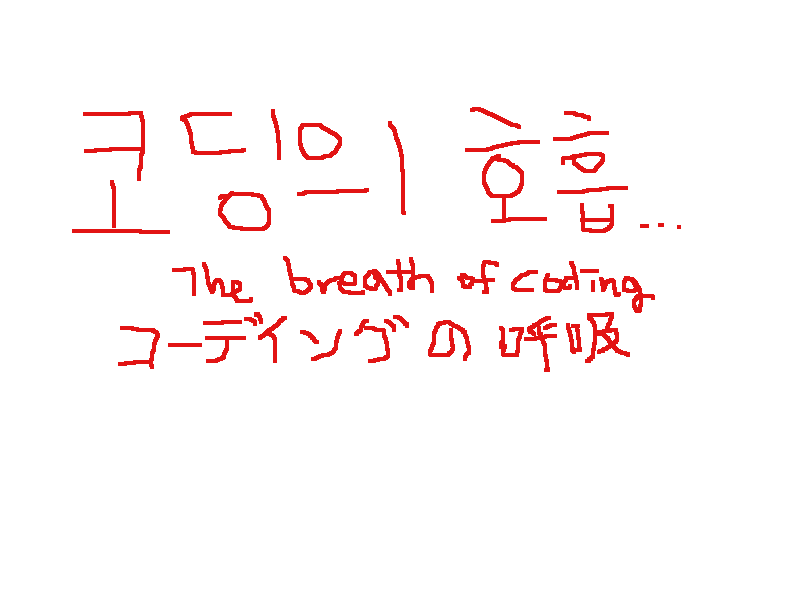 코딩의 호흡...
The breath of coding
コーディングの呼吸